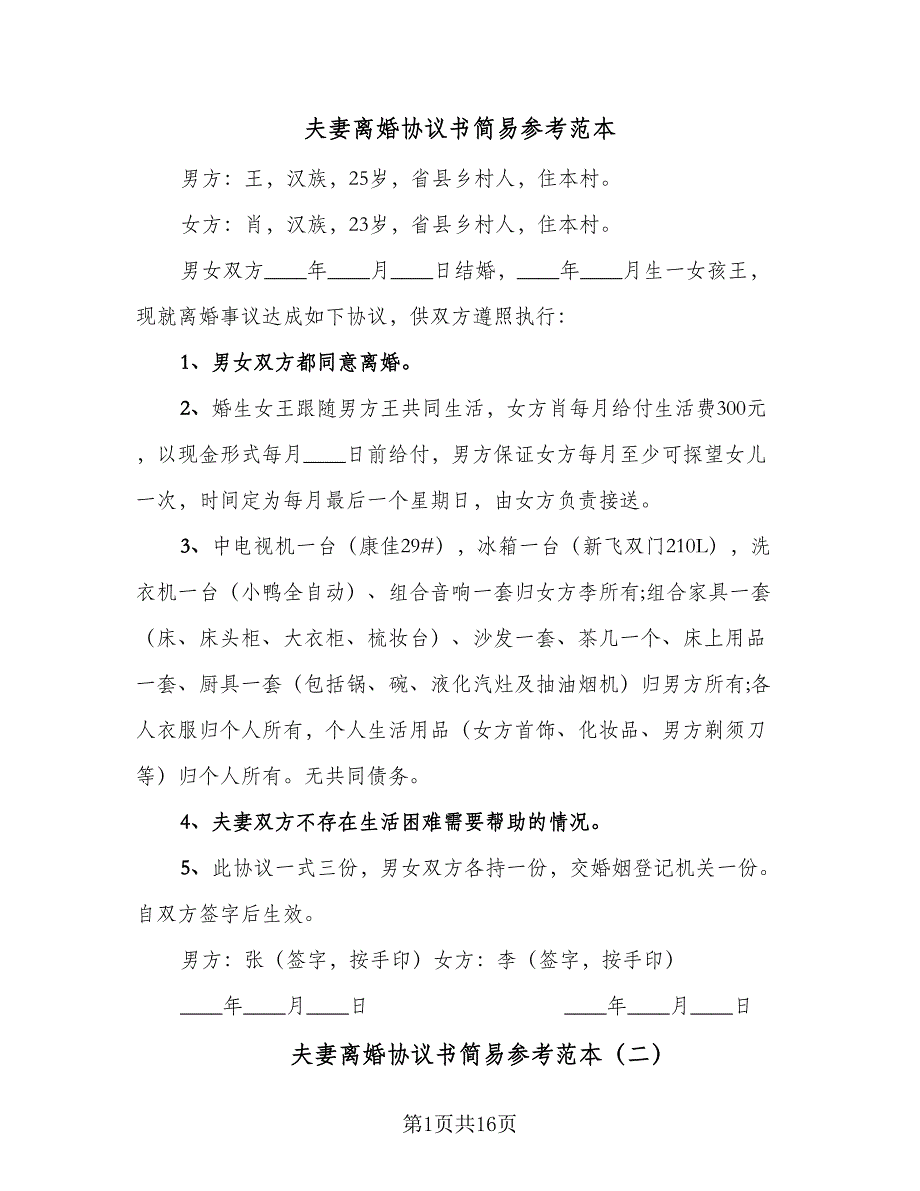 夫妻离婚协议书简易参考范本
男方：王，汉族，25岁，省县乡村人，住本村。
女方：肖，汉族，23岁，省县乡村人，住本村。
男女双方____年____月____日结婚，____年____月生一女孩王，
现就离婚事议达成如下协议，供双方遵照执行：
1、男女双方都同意离婚。
2、婚生女王跟随男方王共同生活，女方肖每月给付生活费300元
，以现金形式每月____日前给付，男方保证女方每月至少可探望女儿
一次，时间定为每月最后一个星期日，由女方负责接送。
3、中电视机一台（康佳29#），冰箱一台（新飞双门210L），洗
衣机一台（小鸭全自动）、组合音响一套归女方李所有;组合家具一套
（床、床头柜、大衣柜、梳妆台）、沙发一套、茶几一个、床上用品
一套、厨具一套（包括锅、碗、液化汽灶及抽油烟机）归男方所有;各
人衣服归个人所有，个人生活用品（女方首饰、化妆品、男方剃须刀
等）归个人所有。无共同债务。
4、夫妻双方不存在生活困难需要帮助的情况。
5、此协议一式三份，男女双方各持一份，交婚姻登记机关一份。
自双方签字后生效。
男方：张（签字，按手印）女方：李（签字，按手印）
____年____月____日 ____年____月____日
夫妻离婚协议书简易参考范本（二）
第1页共16页